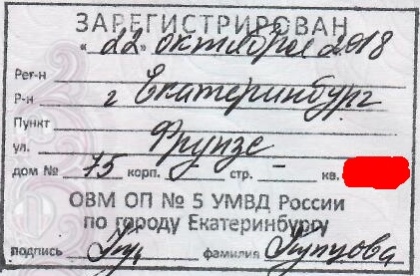 ЗАРЕГИСТРИРОВАН
«22» октября 2018
Рег-н
Р-н г Екатеринбург
Пункт
ул. Фрунзе
дом № 75 корп. стр. – кв.
ОВМ ОП № 5 УМВД России
по городу Екатеринбургу
подпись фамилия Купцова